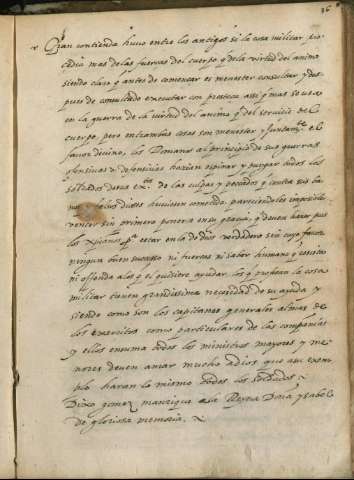 96
Gran contienda huvo entre los antigos si la cosa militar pro
cedia mas de las fuerças del cuerpo q̃ de la virtud del animo
siendo claro q̃ antes de començar es menester consultar y des
pues de consultado executar con presteça assi q̃ mas se usa
en la guerra de la virtud del animo q̃ del servicio del
cuerpo pero entrambas cosas son menester y juntamte el
favor divino, los Romanos al principio de sus guerras
ofensivas y defensivas hazian espiar y purgar todos los
soldados de su exto de las culpas y pecados q̃ contra sus ba
nos y falsos dioses huviesen cometido pareciendoles imposible
vencer sin primero ponerse en su gracia, q̃ deven hazer pues
los xpianos pa estar en la de dios verdadero sin cuyo favor
ningun buen suceso ni fuerças ni saber humano
ni ofende a los q̃ el quisiere ayudar, los q̃ profesan la cosa
militar tienen grandissima necesidad de su ayuda y
siendo como son los capitanes generales almas de
los exercitos como particulares de las compañias
y ellos en suma todos los ministros mayores y me
nores deven amar mucho a dios que a su exem
plo haran lo mismo todos los soldados
Dixo gomez manrique a la Reyna Doña ysabel
de gloriosa memoria.